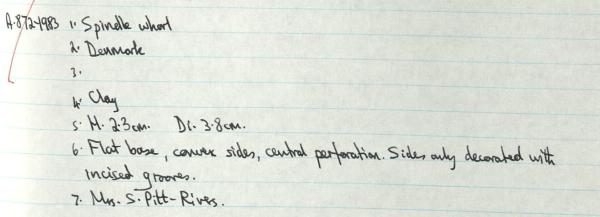 A.872-1983 1. Spindle whorl
2. Denmark
3.
4. Clay
5. H. 2.3cm. Di. 3.8cm.
6. Flat base, convex sides, central perforation. Sides only decorated with
incised grooves.
7. Mrs. S. Pitt-Rivers.